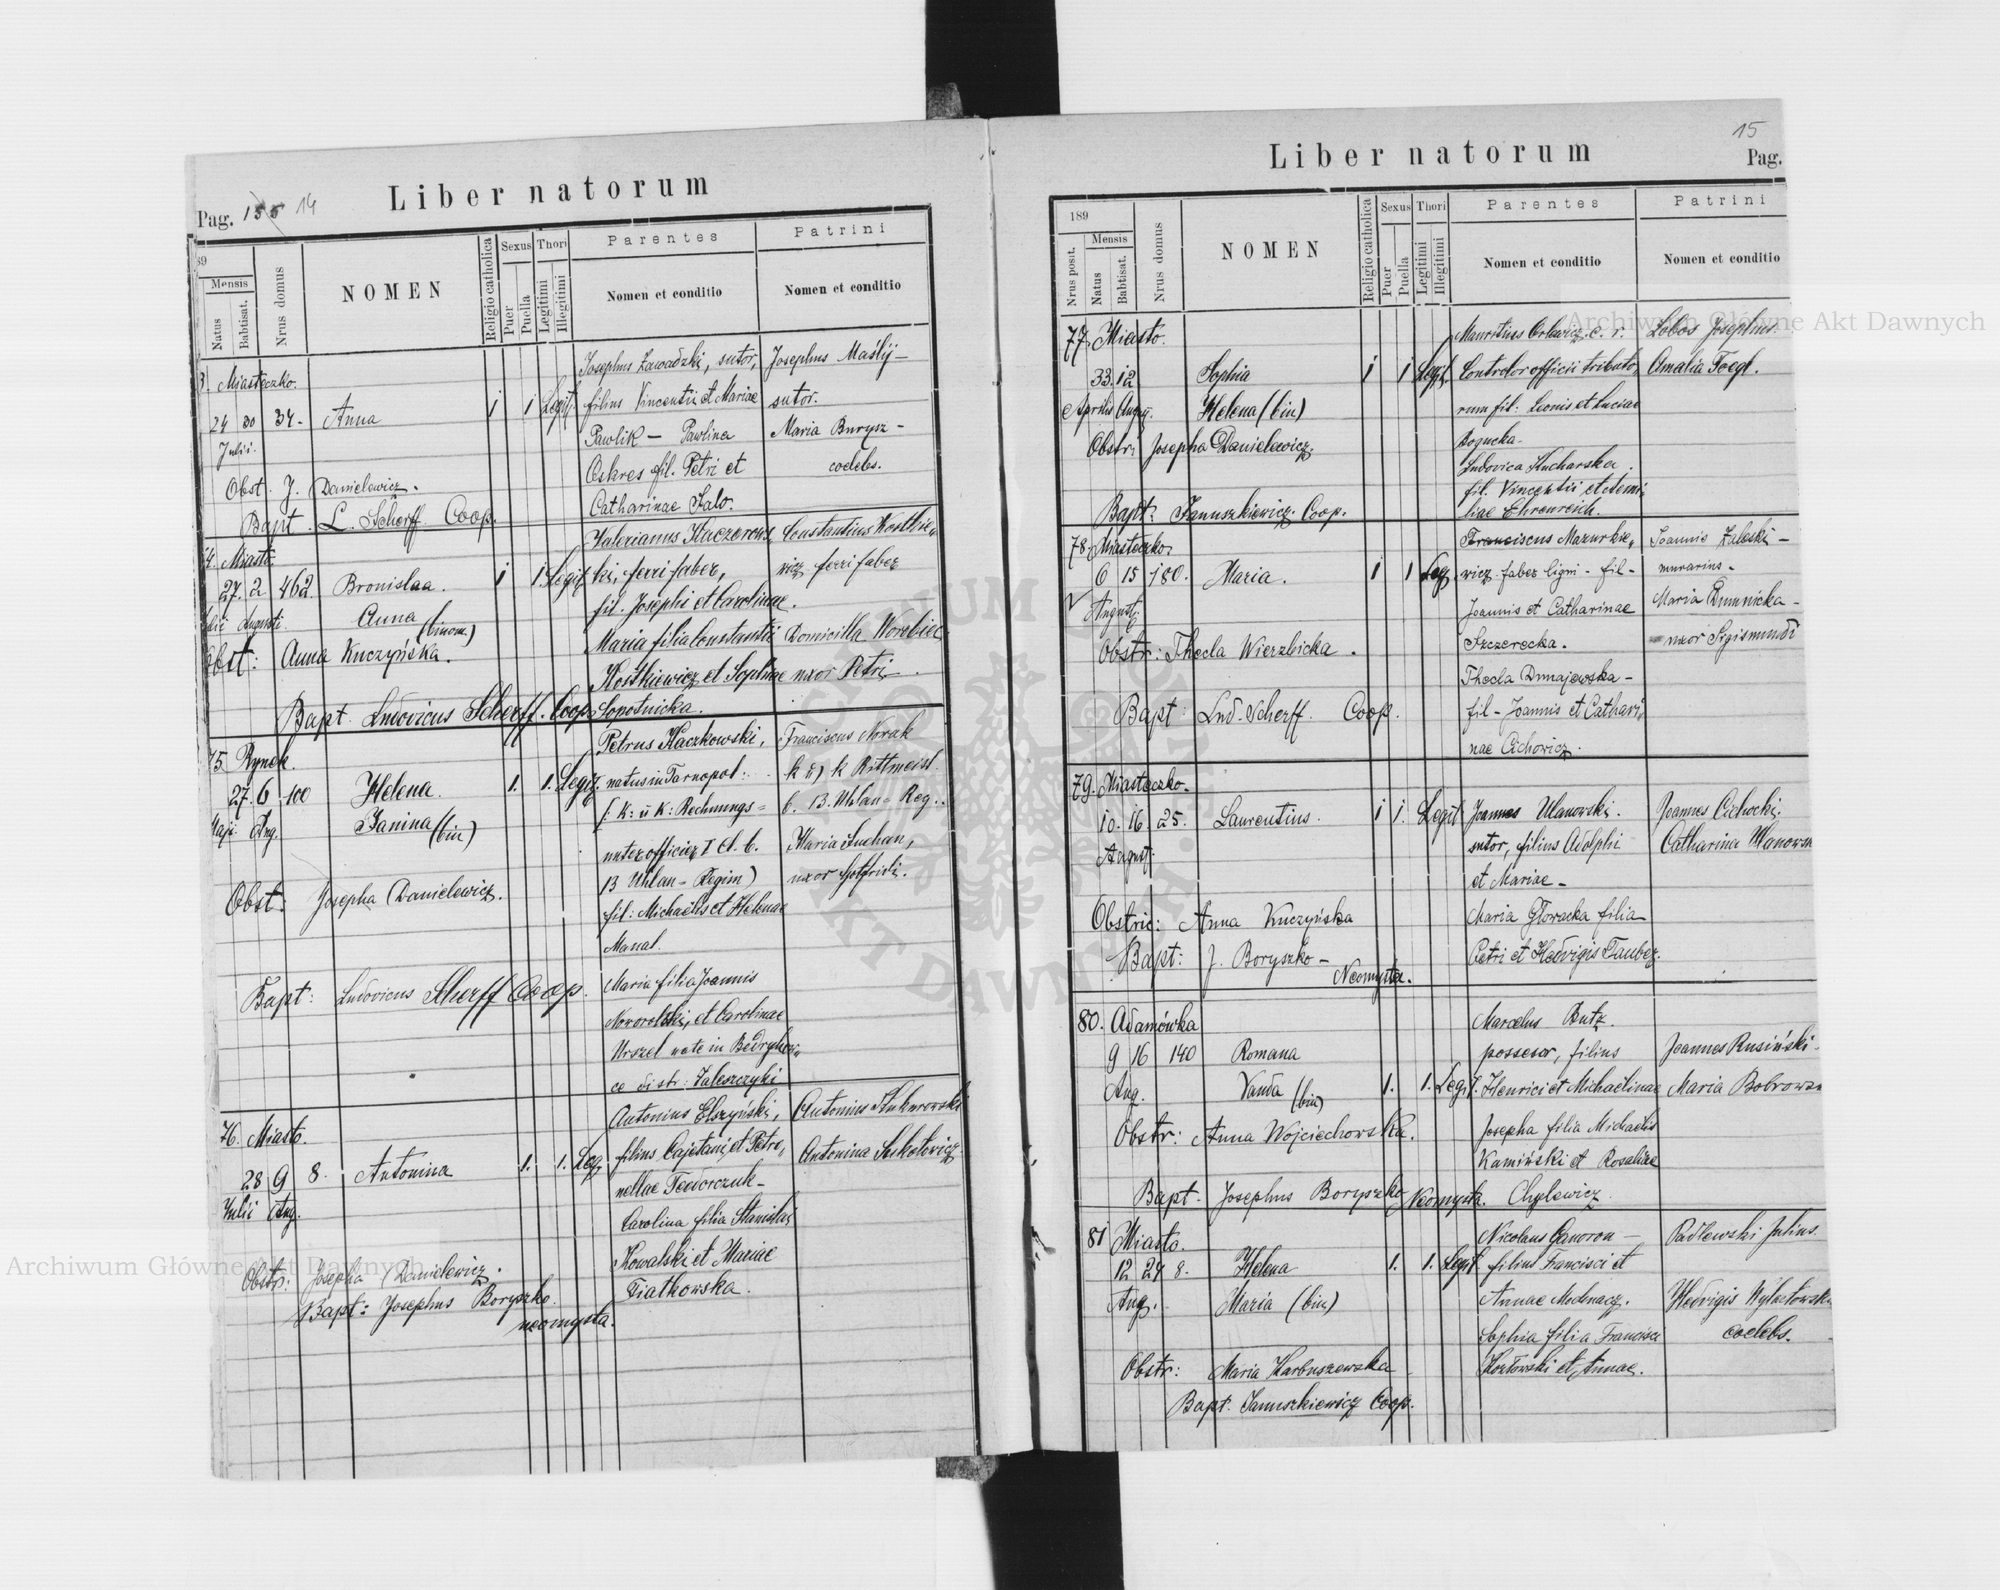 Liber natorum
Pag. 155 14
89
Mensis
Natus
Babtisat.
Nrus domus
NOMEN
Religio catholica
Sexus
Puer
Puella
Thori
Legitimi
Illegitimi
Parentes
Nomen et conditio
Patrini
Nomen et conditio
3. Miasteczko.
24 30 34. Anna 1 1 Legit.
Julii.
Obst. J. Danielewicz.
Bapt. L. Scherff Coop.
Josephus Zawadzki, sutor,
filius Vincentii et Mariae
Pawlik — Pawlina
fil. Petri et
Catharinae
Josephus Maślij —
sutor.
Maria Burysz -
coelebs.
4. Miasto
27. 2 462. Bronislaa. 1 1 Legit
Augusti. Anna (binom.)
Obst: Anna Kuczyńska.
Bapt. Ludovicus Scherff. Coop.
Valerianus Kaczorows
ki, ferri faber,
fil. Josephi et Carolinae.
Maria filia Constantii
Kostkiewicz et Sophiae
Sopotnicka.
Constantius Kostkie„
wicz ferri faber
Domicilla Worobiec
uxor Petri.
75 Rynek.
27. 6 100 Helena. 1. 1. Legit.
Maji Aug. Janina (bin)
Obst: Josepha Danielewicz.
Bapt: Ludovicus Scherff Coop.
Petrus Kaczkowski,
natus in Tarnopol:
(: K: u K: Rechnungs=
unterofficier I Cl. b.
13 Uhlan - Regim)
fil: Michaelis et Helenae
Manal.
Maria filia Joannis
Noworolski, et Carolinae
Urszel nate in
ce distr: Zaleszczyki
Franciscus Novak
k u k Rittmeist.
b. 13. Uhlan = Reg..
Maria Suchan,
uxor Gotfridi.
76. Miasto.
28 9 8. Antonina 1. 1. Leg.
Julii Aug.
Obstr: Josepha Danielewicz.
Bapt: Josephus Boryszko.
neomysta.
Antonius Elszyński,
filius Cajetani et Petro„
nellae Teodorczuk -
Carolina filia Stanislai
Kowalski et Mariae
Fiatkowska.
Antonius
Antonina Sokolowicz
15
Liber natorum
Pag.
189
Nrus posit.
Mensis
Natus
Babtisat.
Nrus domus
NOMEN
Religio catholica
Sexus
Puer
Puella
Thori
Legitimi
Illegitimi
Parentes
Nomen et conditio
Patrini
Nomen et conditio
77 Miasto.
33. 12 Sophia 1 1 Legit.
Aprilis Augug. Helena (bin)
Obstr: Josepha Danielewicz.
Bapt: Januszkiewicz. Coop.
Mauritius Orlewicz. c. r.
Controlor officii tributo„
rum fil: Leonis et Luciae
Bogucka.
Ludovica Kucharska.
fil. Vincentii et Aemi„
liae Ehrenreich.
Lobos Josephus.
Amalia Foegl.
78. Miasteczko.
6 15 180. Maria. 1 1 Leg.
Augusti
Obstr: Thecla Wierzbicka.
Bapt: Lud. Scherff. Coop.
Franciscus Mazurkie„
wicz faber ligni - fil -
Joannis et Catharinae
Szczerecka.
Thecla Dunajewska -
fil - Joannis et Cathari„
nae Cichowicz.
Joannis Zaleski —
murarius.
Maria Dumnicka -
uxor Sigismundi
79. Miasteczko.
10. 16. 25. Laurentius. 1 1. Legit
August.
Obstric: Anna Kuczyńska
Bapt: J. Boryszko -
Neomysta.
Joannes Ulanowski.
sutor, filius Adolphi
et Mariae -
Maria Głowacka filia
Petri et Hedvigis Tauber.
Joannes Cichocki.
Catharina Ulanowsk
80. Adamówka
9 16 140 Romana
Aug. Vanda (bin) 1. 1. Legit.
Obstr: Anna Wojciechowska.
Bapt. Josephus Boryszko Neomysta.
Marcelus Butz.
possesor, filius
Henrici et Michaelinae
Josepha filia Michaelis
Kamiński et Rosaliae
Chylewicz.
Joannes Rusiński.
Maria Bobrows
81 Miasto.
12 24 8. Helena 1. 1. Legit.
Aug. Maria (bin)
Obstr: Maria Harbuszewska
Bapt. Januszkiewicz Coop.
Nicolaus Gawron —
filius Francisci et
Annae
Sophia filia Francisci
Kozłowski et Annae.
Padlewski Julius.
Hedvigis
coelebs.
Archiwum Główne Akt Dawnych
Archiwum Główne Akt Dawnych
ARCHIWUM GŁÓWNE AKT DAWNYCH